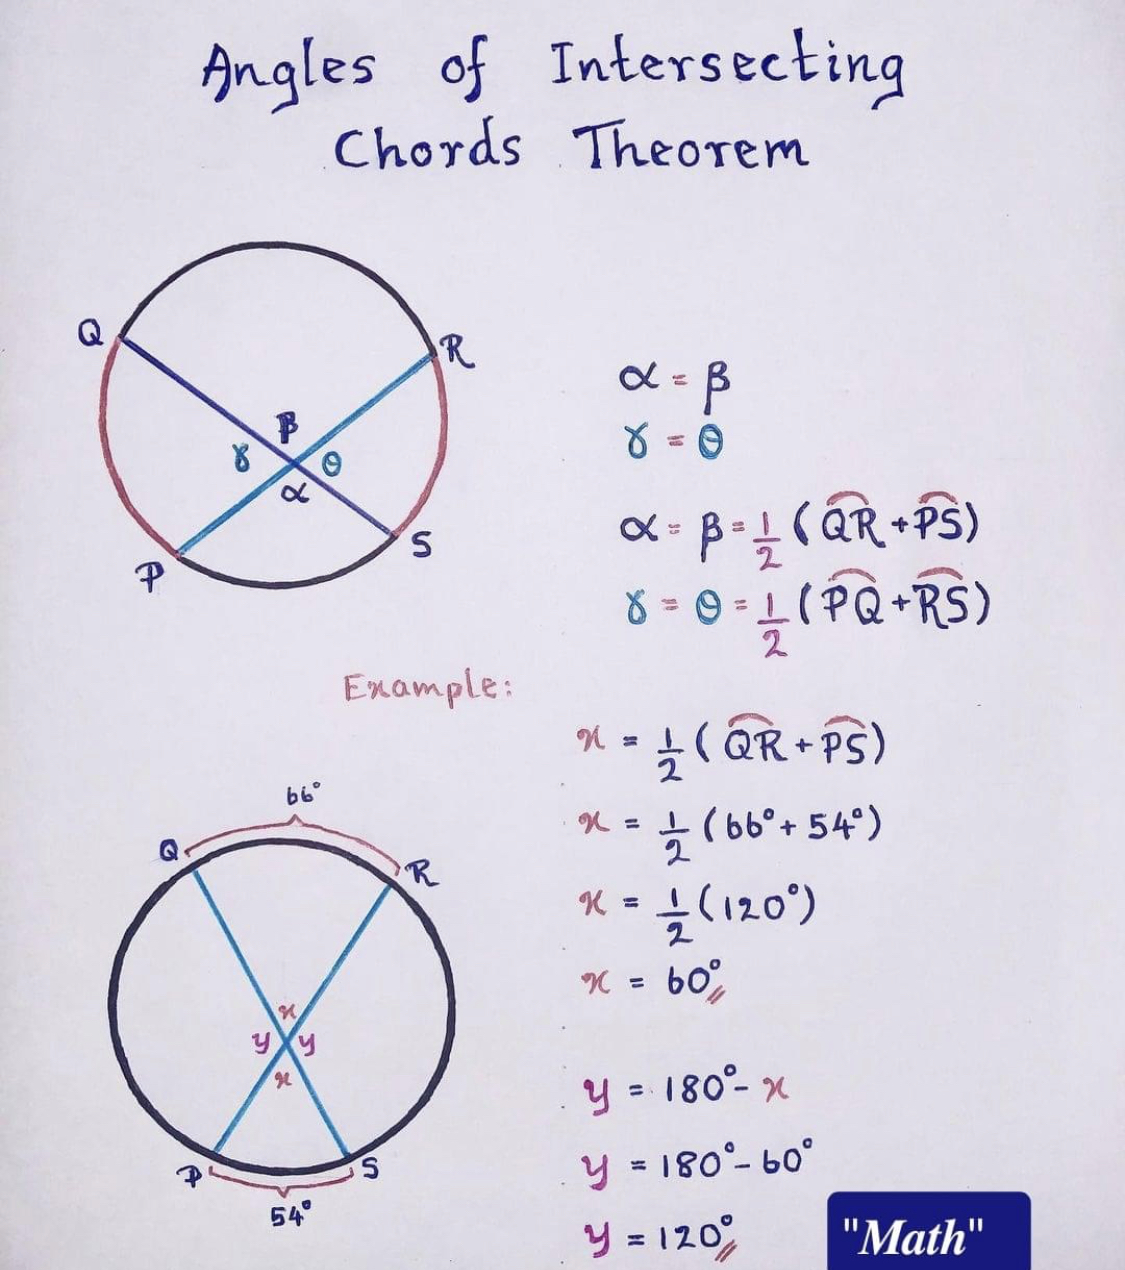 Angles of Intersecting
Chords Theorem
Q
R
β
γ
θ
α
S
P
α = β
γ = θ
α = β = 1/2 (QR + PS)
γ = θ = 1/2 (PQ + RS)
Example:
66°
Q
R
x
y
y
x
P
S
54°
x = 1/2 (QR + PS)
x = 1/2 (66° + 54°)
x = 1/2 (120°)
x = 60°
y = 180° - x
y = 180° - 60°
y = 120°
"Math"